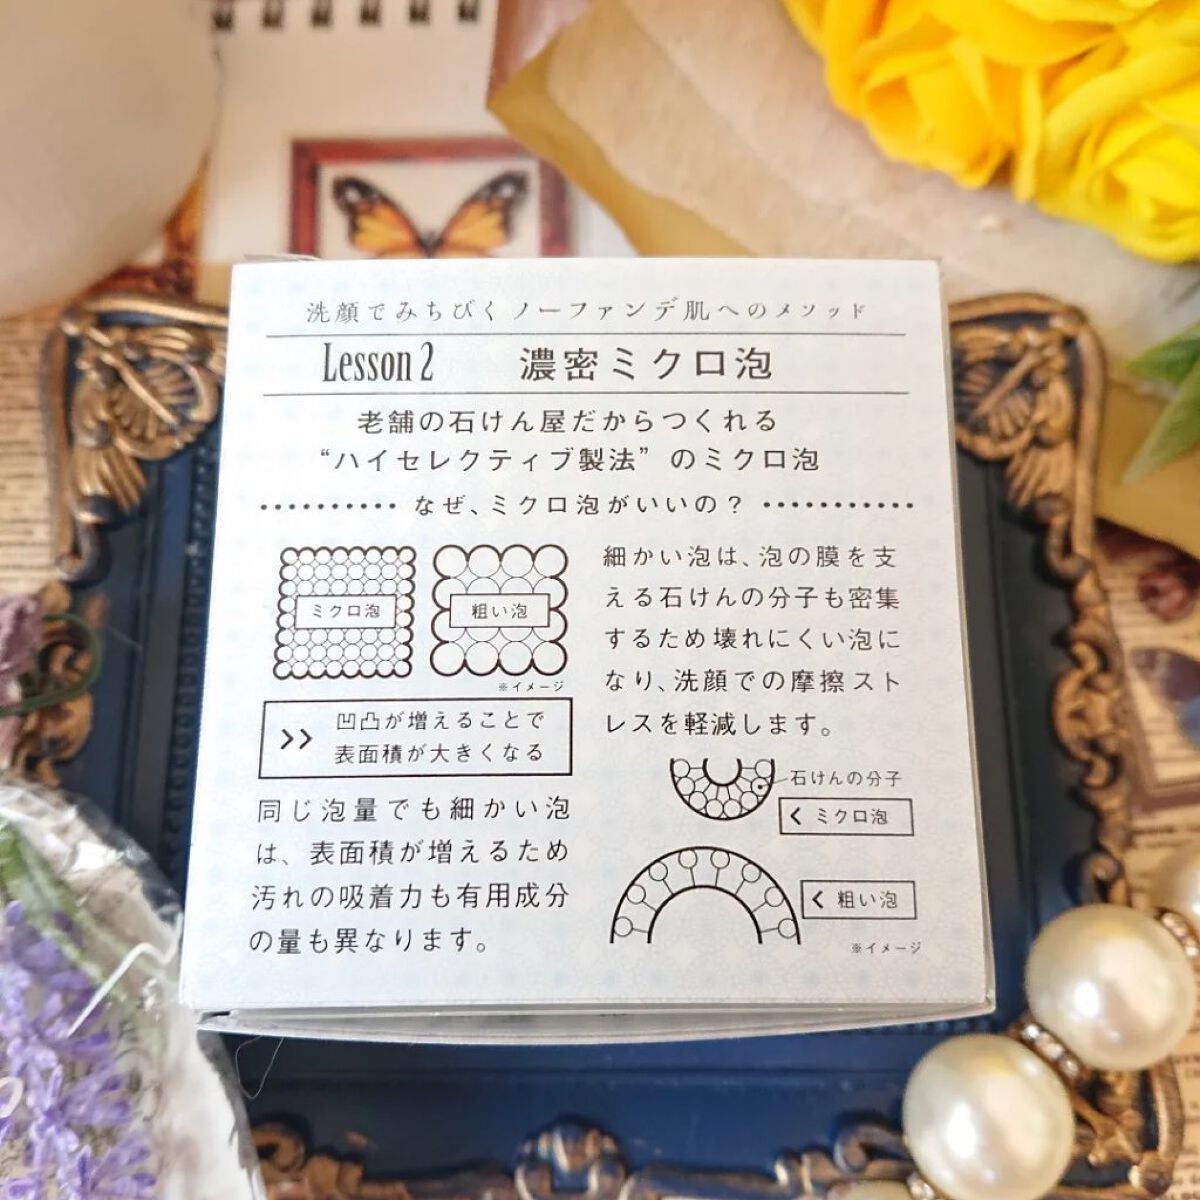 洗顔でみちびくノーファンデ肌へのメソッド
Lesson 2 濃密ミクロ泡
老舗の石けん屋だからつくれる
“ハイセレクティブ製法”のミクロ泡
なぜ、ミクロ泡がいいの？
ミクロ泡
粗い泡
※イメージ
>> 凹凸が増えることで
表面積が大きくなる
同じ泡量でも細かい泡
は、表面積が増えるため
汚れの吸着力も有用成分
の量も異なります。
細かい泡は、泡の膜を支
える石けんの分子も密集
するため壊れにくい泡に
なり、洗顔での摩擦スト
レスを軽減します。
石けんの分子
< ミクロ泡
< 粗い泡
※イメージ